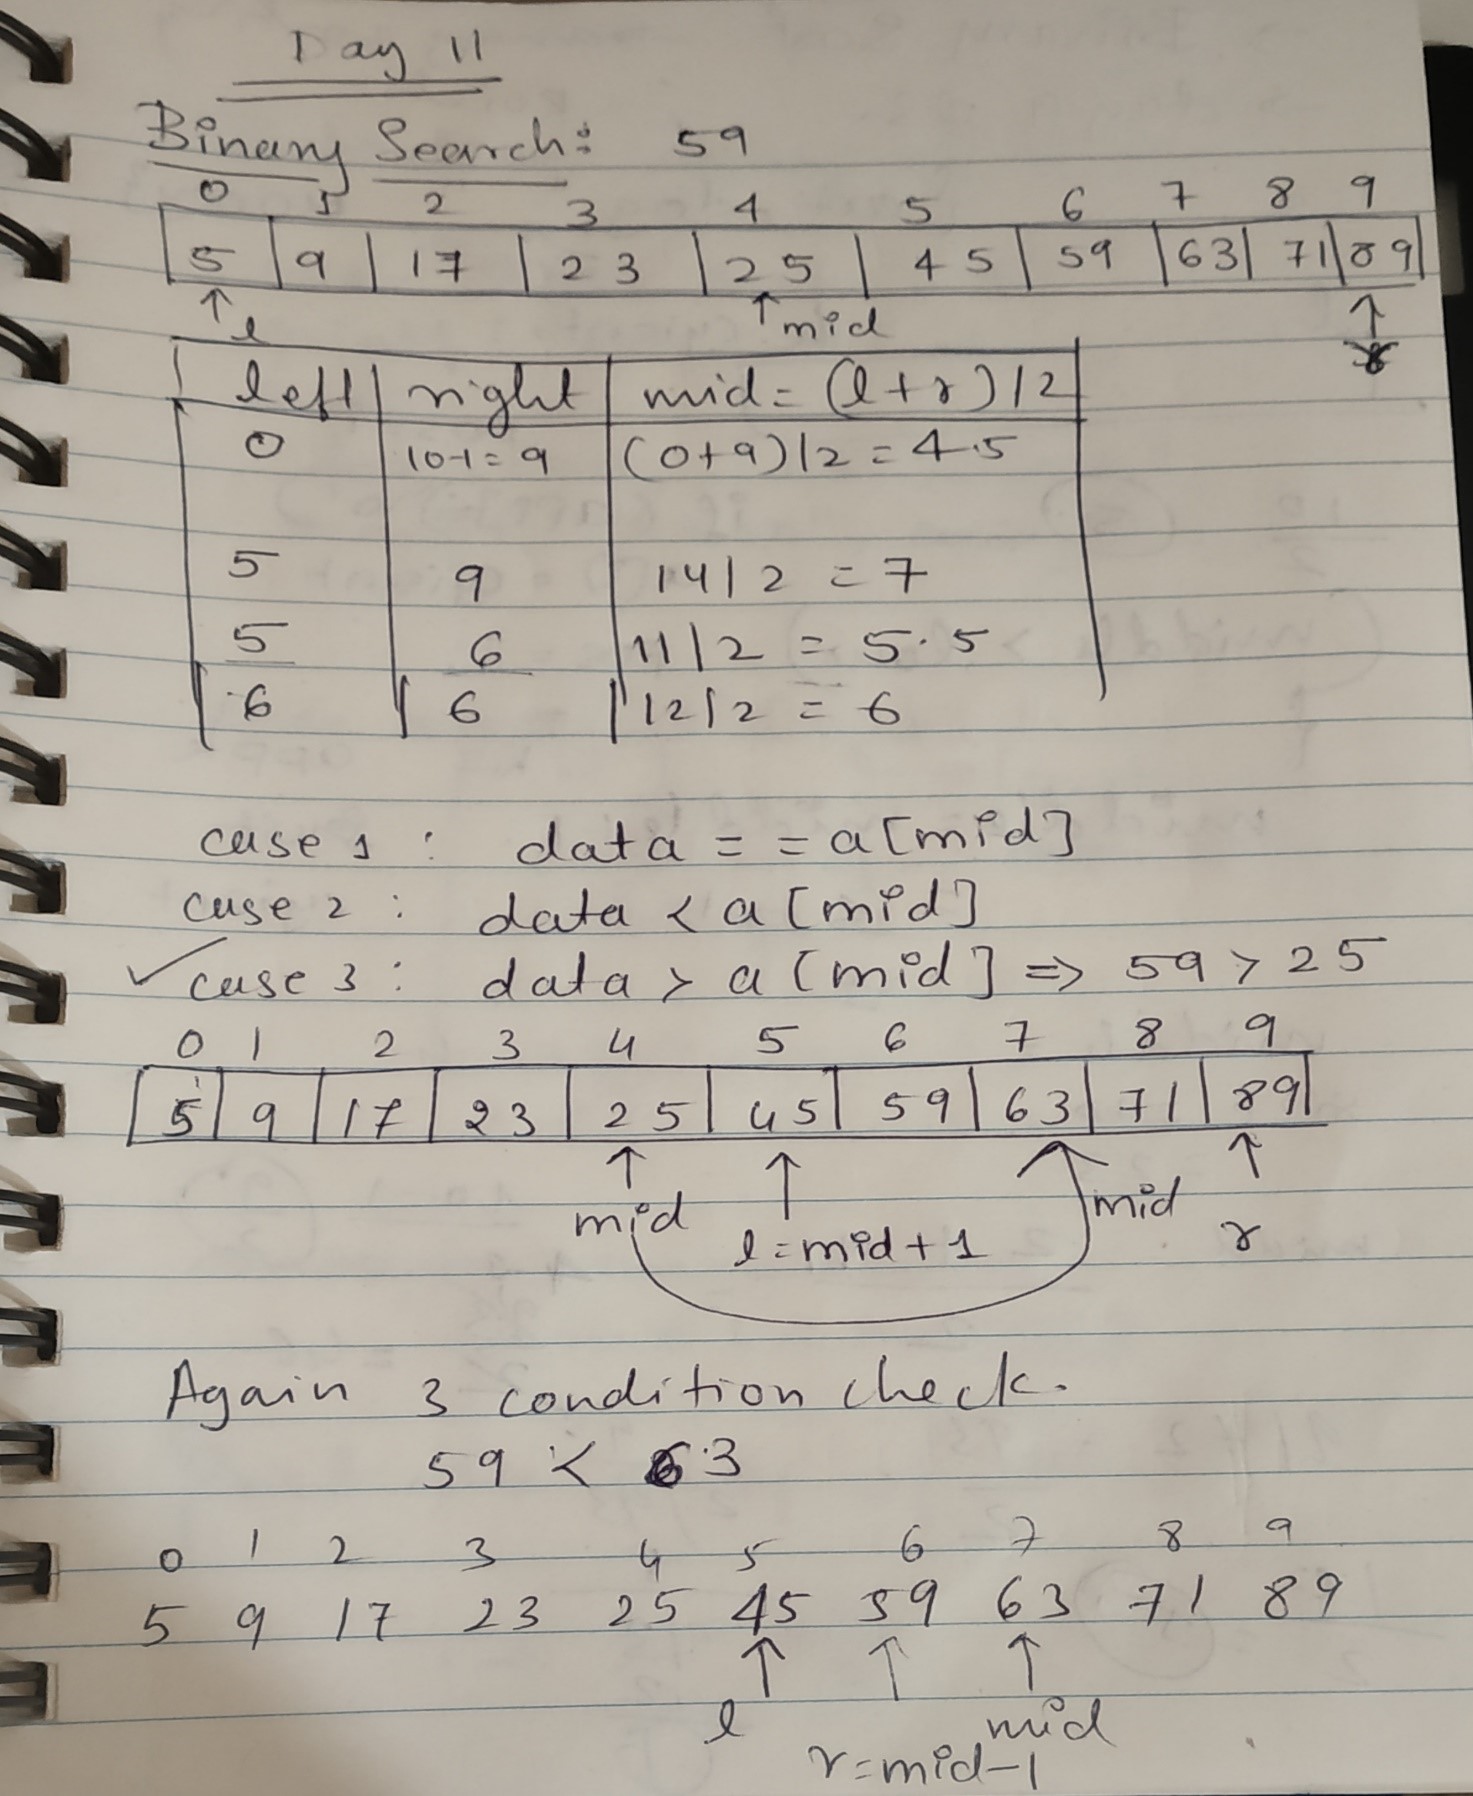 Day 11
Binary Search: 59
0 1 2 3 4 5 6 7 8 9
5 9 17 23 25 45 59 63 71 89
↑l ↑mid ↑r
left right mid = (l+r)/2
0 10-1=9 (0+9)/2 = 4.5
5 9 14/2 = 7
5 6 11/2 = 5.5
6 6 12/2 = 6
case 1 : data = = a[mid]
case 2 : data < a[mid]
✓case 3 : data > a[mid] => 59 > 25
0 1 2 3 4 5 6 7 8 9
5 9 17 23 25 45 59 63 71 89
↑ ↑ ↑
mid l=mid+1 mid r
Again 3 condition check.
59 < 63
0 1 2 3 4 5 6 7 8 9
5 9 17 23 25 45 59 63 71 89
↑ ↑ ↑
l mid
r=mid-1